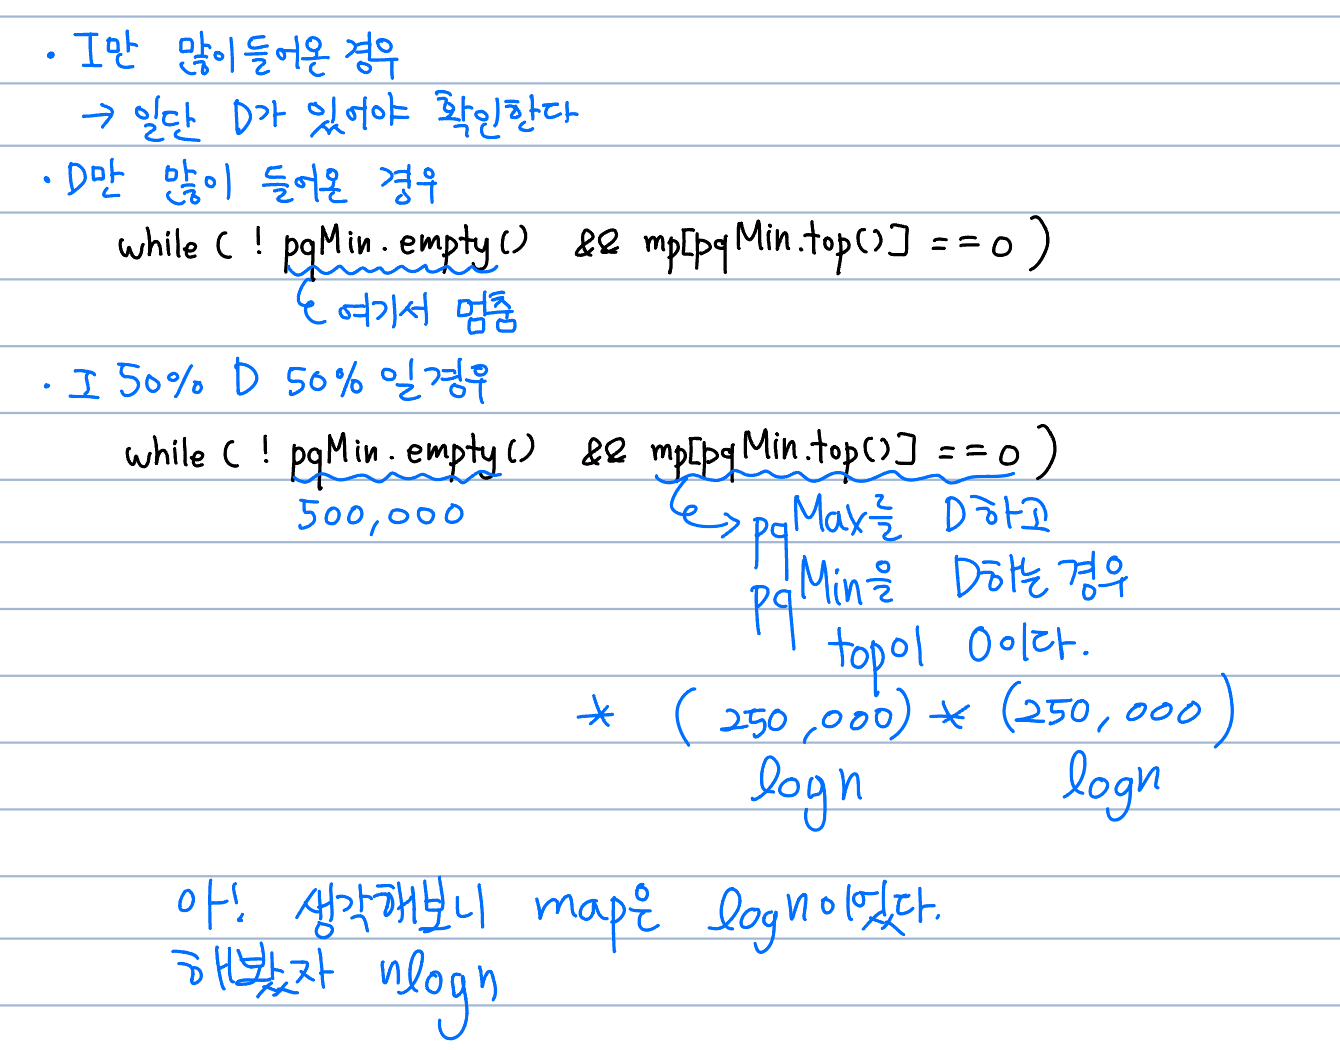 · I만 많이들어온 경우
→ 일단 D가 있어야 확인한다
· D만 많이 들어온 경우
while ( ! pqMin.empty() && mp[pqMin.top()] == 0 )
여기서 멈춤
· I 50% D 50% 일경우
while ( ! pqMin.empty() && mp[pqMin.top()] == 0 )
500,000
pqMax를 D하고
pqMin을 D하는경우
top이 0이다.
* ( 250,000) * (250,000 )
logn logn
아! 생각해보니 map은 logn이었다.
해봤자 nlogn